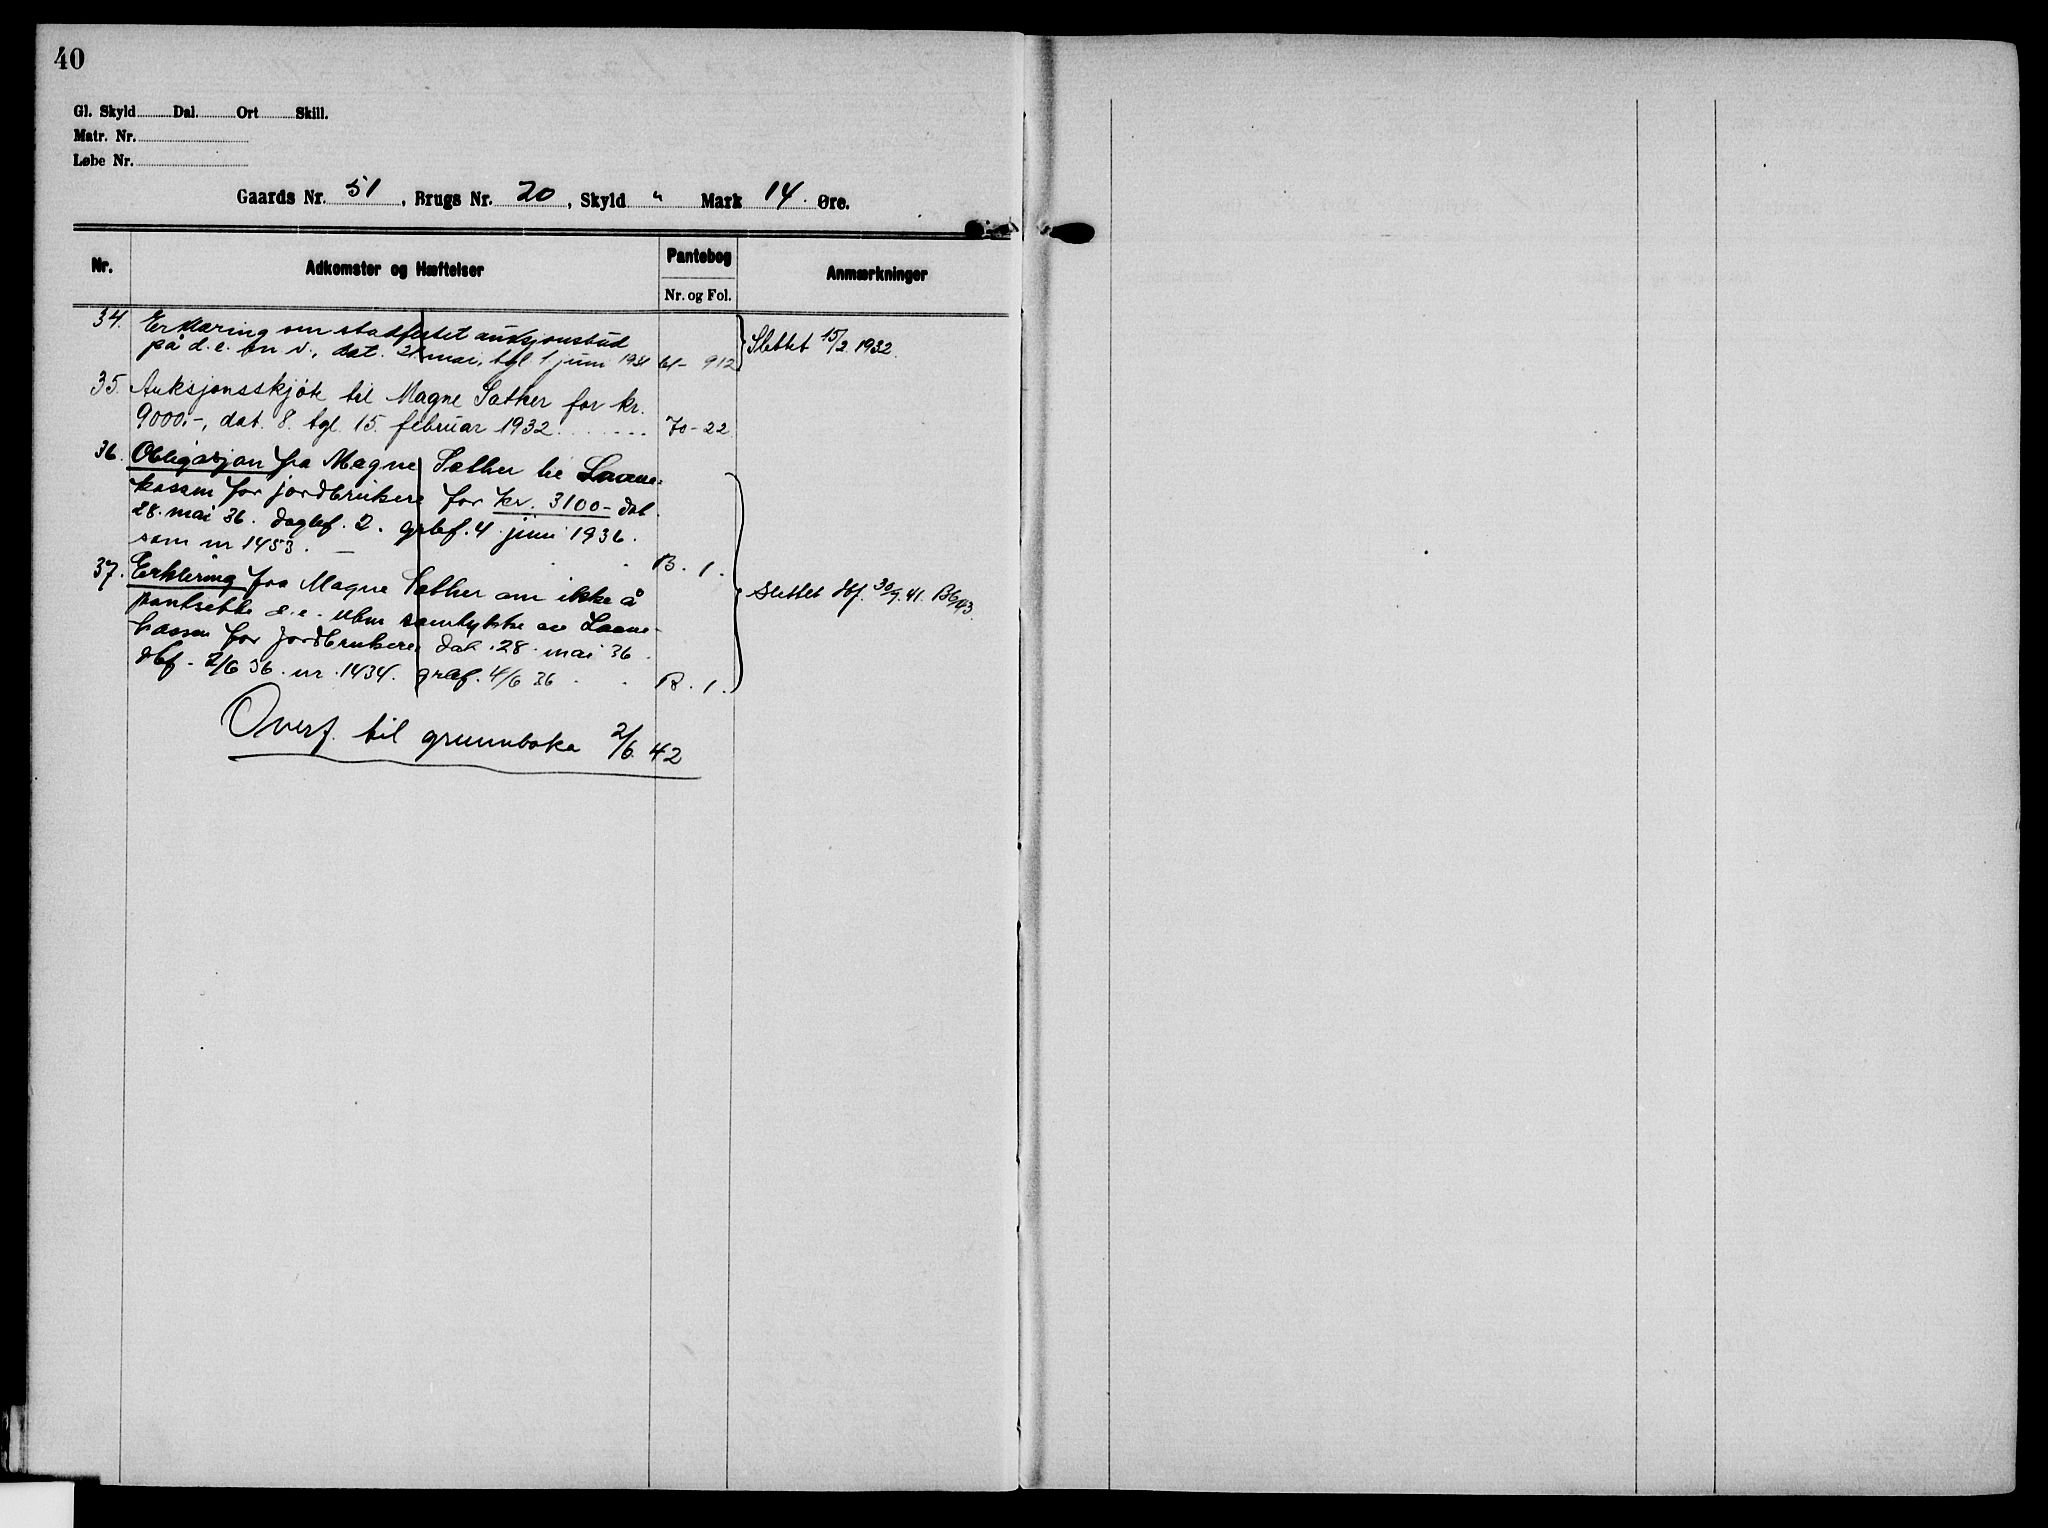 40
Gl. Skyld Dal. Ort Skill.
Matr. Nr.
Løbe Nr.
Gaards Nr. 51, Brugs Nr. 20, Skyld " Mark 14 Øre.
Nr. Adkomster og Hæftelser Pantebog Anmærkninger
Nr. og Fol.
34. Erklæring om stadfestet auksjonsbud
på d. e. m. v., dat. 21 mai, tgl. 1. juni 1931 61 - 912 Slettet 15/2 1932.
35. Auksjonsskjøte til Magne Sæther for kr.
9000.-, dat. 8. tgl. 15. februar 1932. 70 - 22
36. Obligasjon fra Magne Sæther til Laane-
kassen for jordbrukere for kr. 3100 - dat.
28. mai 36. dagbf. 2. grbf. 4 juni 1936.
som nr 1453. B. 1.
37. Erklering fra Magne Sæther om ikke å
pantsette d. e. uten samtykke av Laane-
kassen for jordbrukere dat. 28. mai 36.
dbf - 2/6 36. nr. 1434. grbf. 4/6 36 B. 1.
Slettet dbf. 30/9. 41.
Overf. til grunnboka 2/6. 42